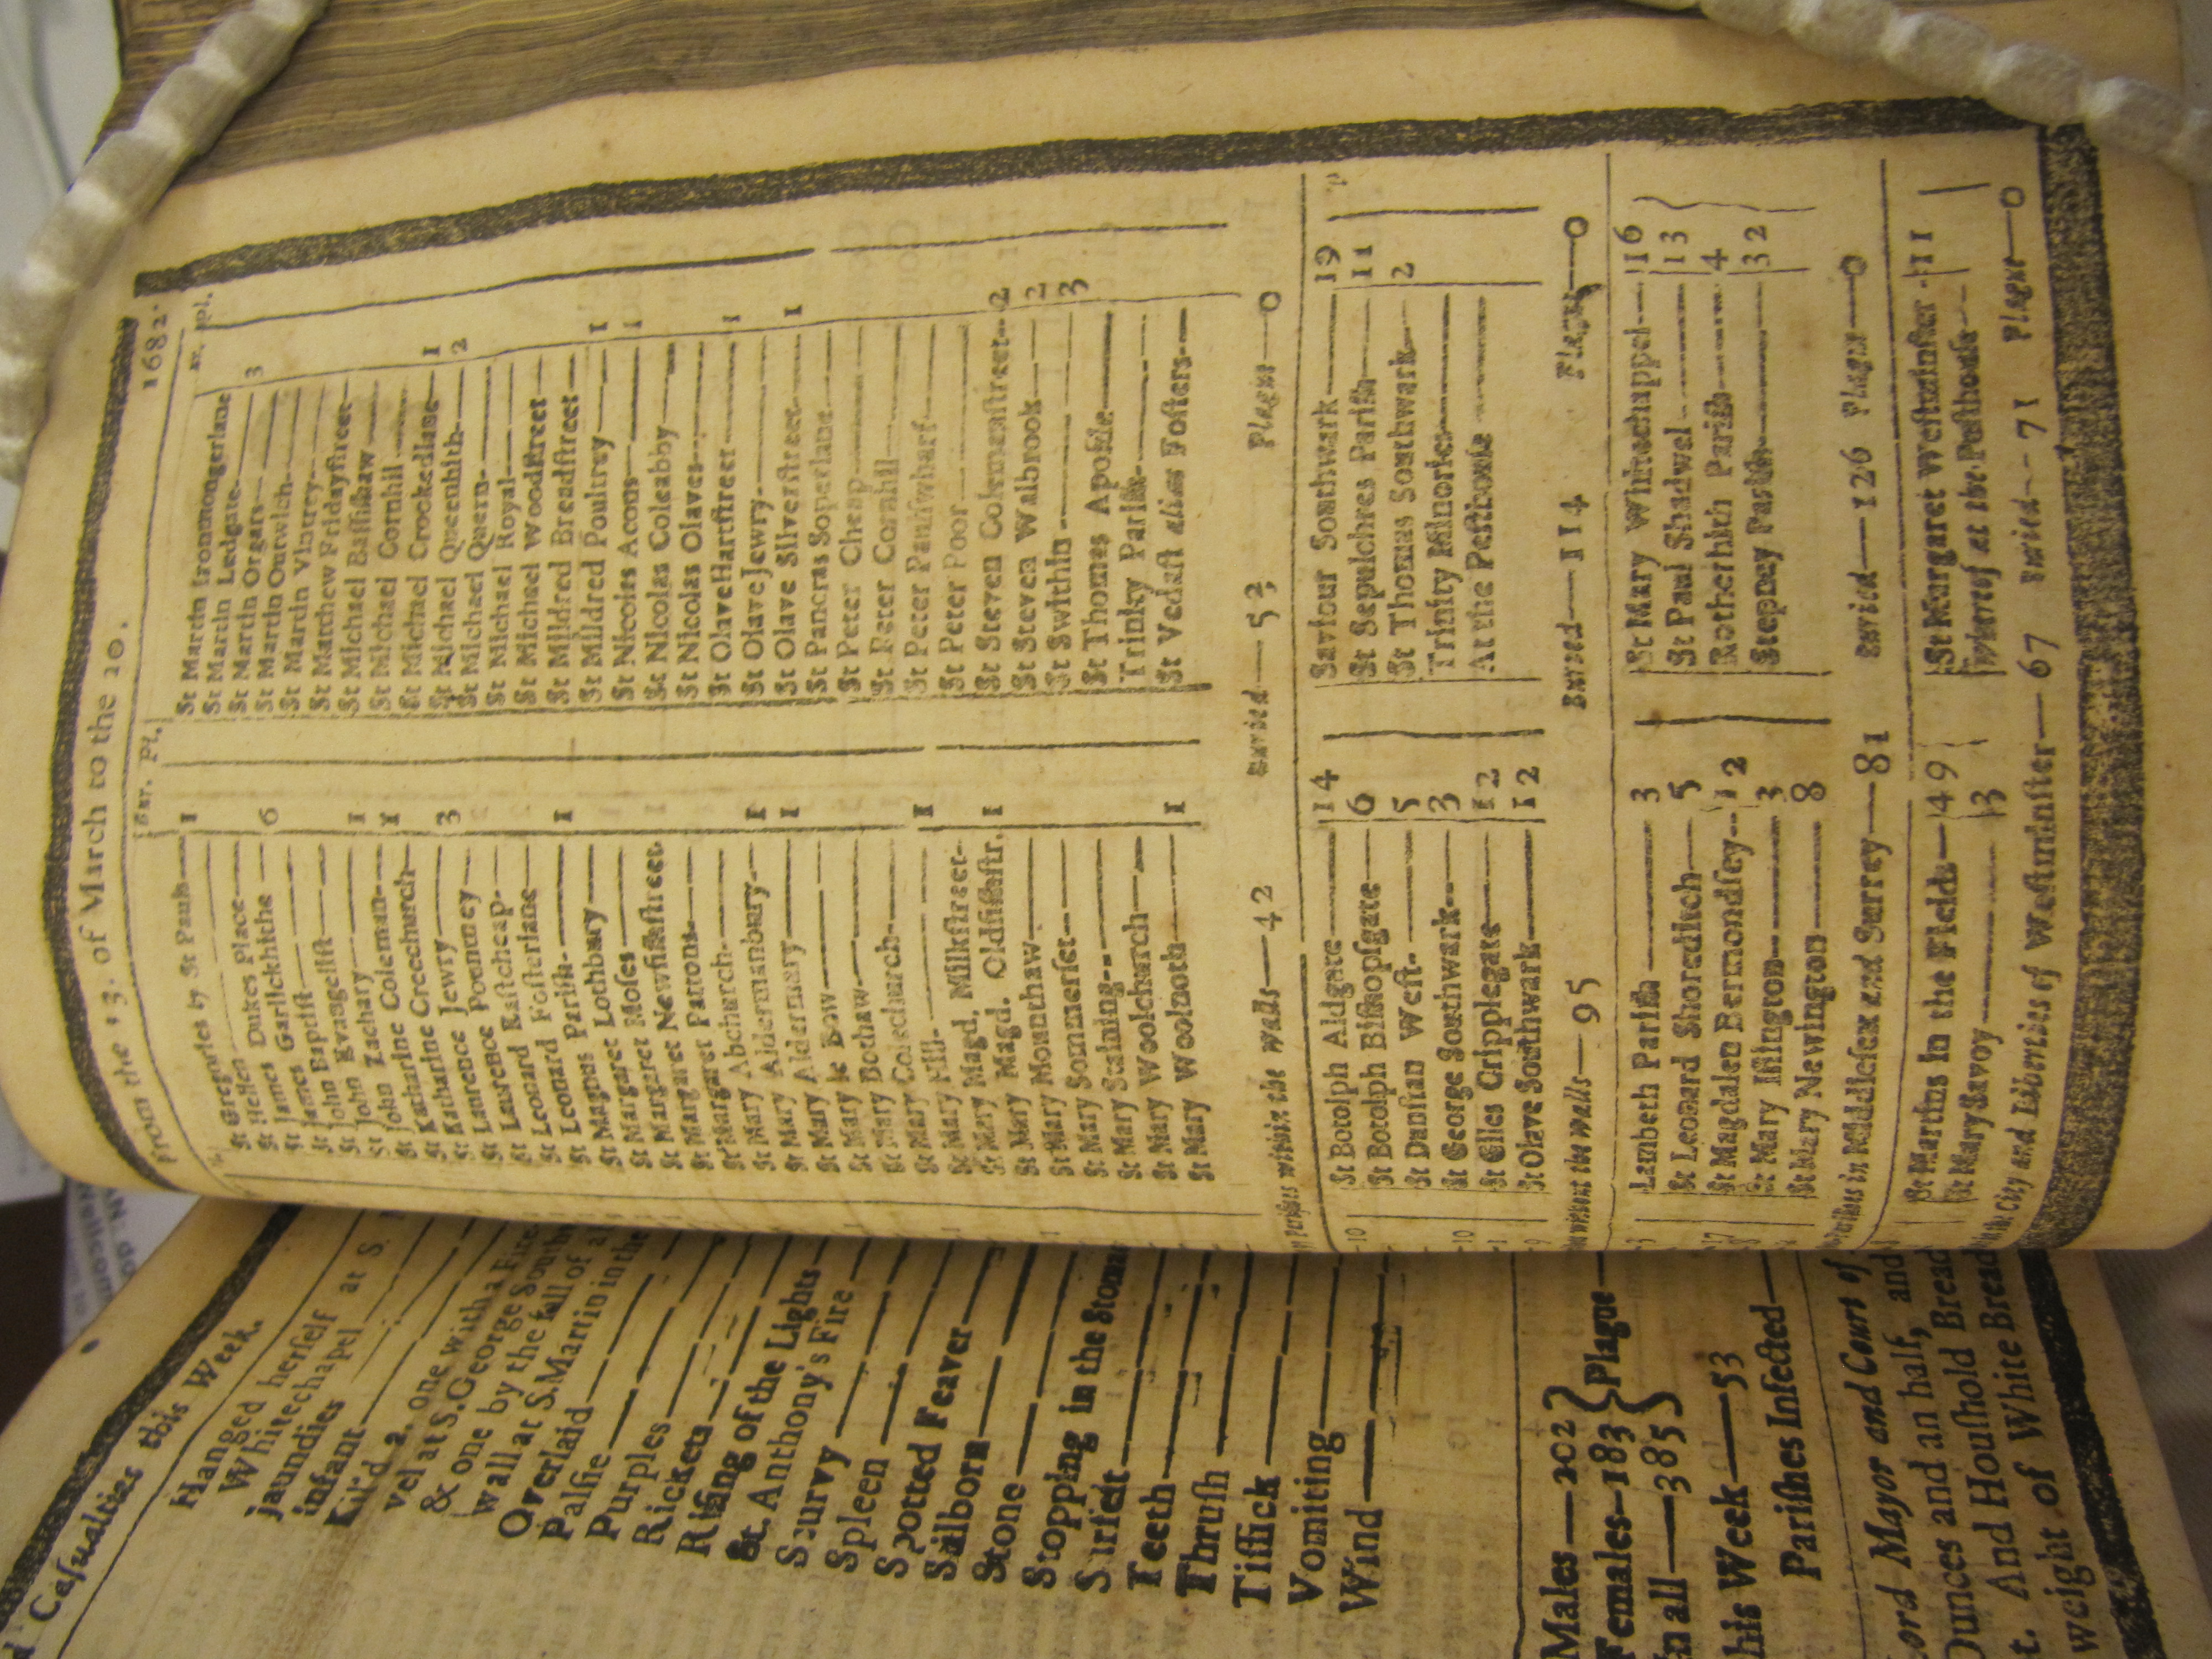 From the 13. of March to the 20. 1682.
Bur. Pl.
St Gregories by St Pauls 1
St Hellen
St James Dukes Place
St James Garlickhithe 6
St John Baptist
St John Evangelist
St John Zachary 1
St John Coleman 1
St Katharine Creechurch
St Katharine Jewry 3
St Laurence Pountney
St Laurence
St Leonard Eastcheap
St Leonard Fosterlane 1
St Magnus Parish
St Margaret Lothbury
St Margaret Moses
St Margaret Newfishstreet
St Margaret Pattons
St Mary Abchurch
St Mary Aldermanbury 1
St Mary Aldermary 1
St Mary le Bow
St Mary Bothaw
St Mary Colechurch
St Mary Hill 1
St Mary Magd. Milkstreet
St Mary Magd. Oldfishstr. 1
St Mary Mounthaw
St Mary Sommerset
St Mary Staining
St Mary Woolchurch
St Mary Woolnoth 1
St Martin Ironmongerlane
St Martin Ludgate 3
St Martin Orgars
St Martin Outwich
St Martin Vintrey
St Matthew Fridaystreet
St Michael Bassishaw
St Michael Cornhil
St Michael Crookedlane 1
St Michael Queenhith 2
St Michael Quern
St Michael Royal
St Michael Woodstreet
St Mildred Breadstreet
St Mildred Poultrey 1
St Nicolas Acons 1
St Nicolas Coleabby
St Nicolas Olaves
St Olave Hartstreet 1
St Olave Jewry
St Olave Silverstreet 1
St Pancras Soperlane
St Peter Cheap
St Peter Cornhil
St Peter Paulswharf
St Peter Poor
St Steven Colemanstreet 2
St Steven Walbrook 2
St Swithin 3
St Thomas Apostle
Trinity Parish
St Vedast alias Fosters
Parishes within the walls—42 Buried—52 Plague—0
St Botolph Aldgate 14
St Botolph Bishopsgate 6
St Dunstan West 5
St George Southwark 3
St Giles Cripplegate 12
St Olave Southwark 12
Saviour Southwark 19
St Sepulchres Parish 11
St Thomas Southwark 2
Trinity Minories
At the Pesthouse
without the walls—95 Buried—114 Plague—0
Lambeth Parish 3
St Leonard Shoreditch 5
St Magdalen Bermondsey 12
St Mary Islington 3
St Mary Newington 8
St Mary Whitechappel 16
St Paul Shadwel 13
Rotherhith Parish 4
Stepney Parish 32
in Middlesex and Surrey—81 Buried—126 Plague—0
St Martins in the Fields 49
St Mary Savoy 3
St Margaret Westminster 11
Whereof at the Pesthouse
the City and Liberties of Westminster—67 Buried—71 Plague—0
Casualties this Week.
Hanged herself at S.
Whitechapel
Jaundies
Infant
Kill'd 2, one with a Fire
vel at S. George South
& one by the fall of a
wall at S. Martin in the
Overlaid
Palsie
Purples
Rickets
Rising of the Lights
St. Anthony's Fire
Scurvy
Spleen
Spotted Feaver
Stilborn
Stone
Stopping in the Stoma
Surfeit
Teeth
Thrush
Tissick
Vomiting
Wind
Males—202
Females—183
In all—385
Plague
this Week—53
Parishes Infected
Lord Mayor and Court of
Ounces and an half, and
t. And Houshold Bread
weight of White Bread